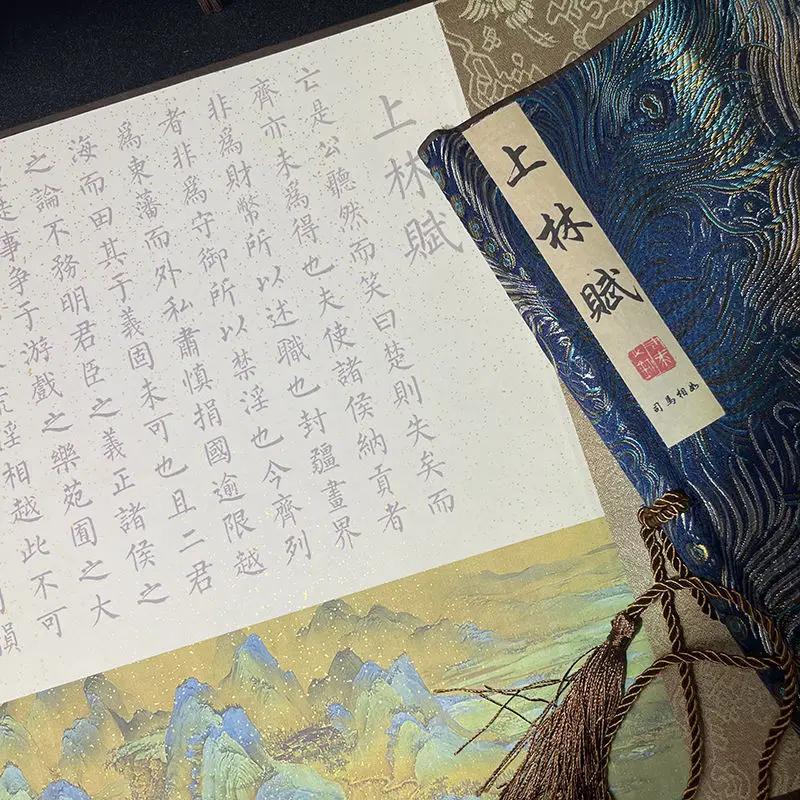 上林賦
司馬相如
上林賦
亡是公聽然而笑曰楚則失矣而
齊亦未爲得也夫使諸侯納貢者
非爲財幣所以述職也封疆畫界
者非爲守御所以禁淫也今齊列
爲東藩而外私肅慎捐國逾限越
海而田其于義固未可也且二君
之論不務明君臣之義正諸侯之
事争于游戲之樂苑囿之大
淫相越此不可
損